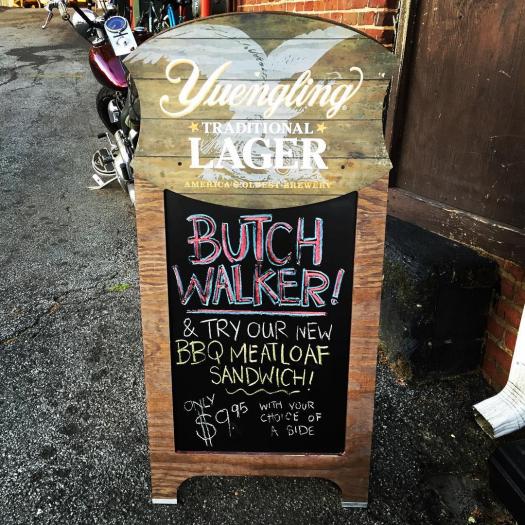 Yuengling
TRADITIONAL
LAGER
AMERICA'S OLDEST BREWERY
BUTCH
WALKER!
& TRY OUR NEW
BBQ MEATLOAF
SANDWICH!
ONLY
$9.95
WITH YOUR
CHOICE OF
A SIDE